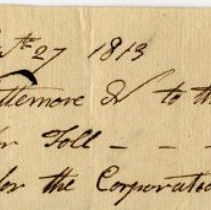 27 1813
ttemore Dr to th
or Toll - - -
for the Corporatio